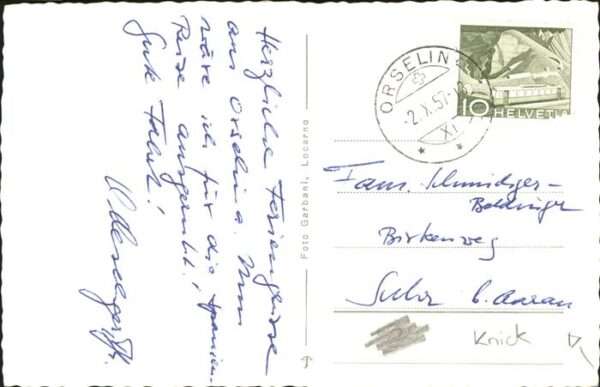 Herzliche Feriengrüsse
aus Orselina. Nun
wäre ich für die Spanien-
Reise ausgeruht!
Gute Fahrt!
Foto Garbani, Locarno
ORSELINA
-2.X.57.
XI
10 HELVETIA
Fam. Schmidiger-
Boldinger
Birkenweg
Suhr b. Aarau
Knick